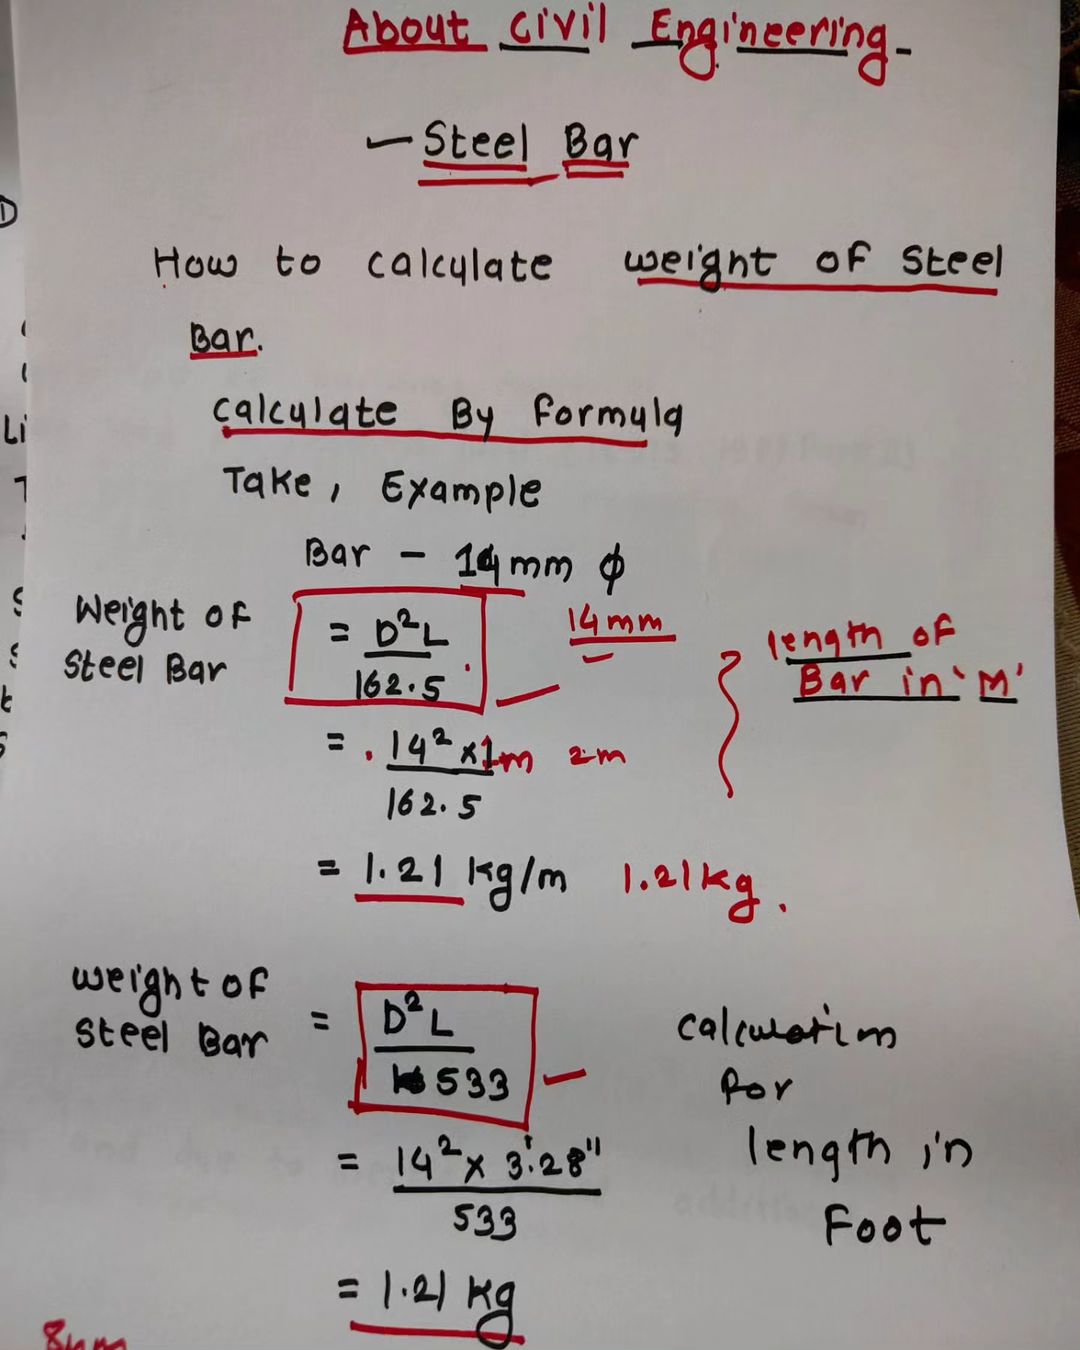 About Civil Engineering-
- Steel Bar
How to calculate weight of Steel
Bar.
calculate By formula
Take, Example
Bar - 14mm ϕ
Weight of
Steel Bar
= D²L
162.5
14mm
length of
Bar in 'M'
= 14² x 1m 2m
162.5
= 1.21 kg/m 1.21kg.
weight of
Steel Bar
= D²L
533
calculation
for
length in
Foot
= 14² x 3'.28"
533
= 1.21 kg
8mm
D
Li